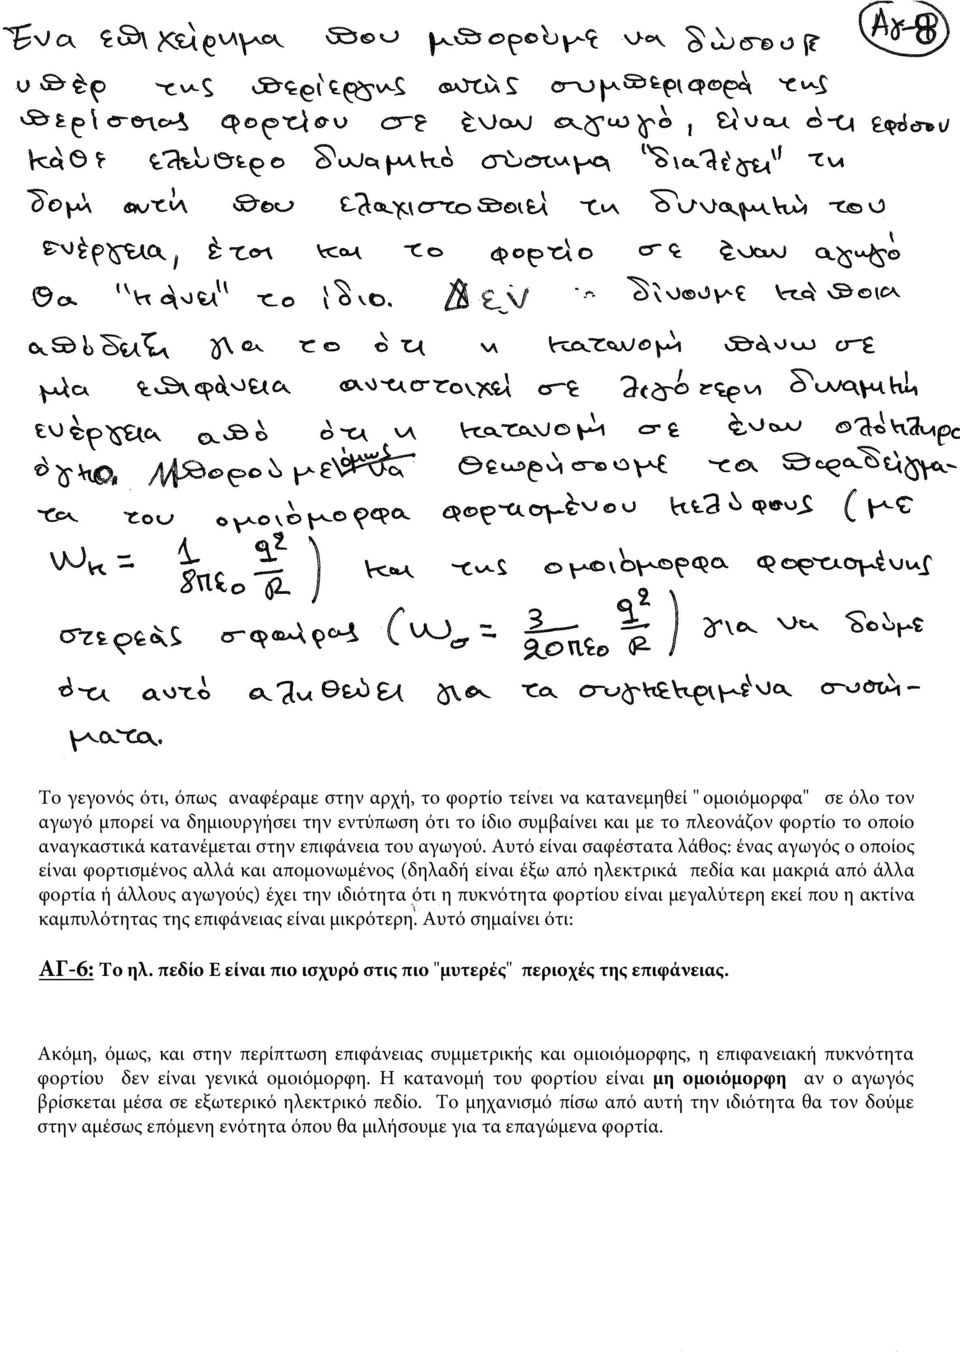 Ένα επιχείρημα που μπορούμε να δώσουμε
Αγ-8
υπέρ της περίεργης αυτής συμπεριφορά της
περίσσιας φορτίου σε έναν αγωγό, είναι ότι εφόσον
κάθε ελεύθερο δυναμικό σύστημα "διαλέγει" τη
δομή αυτή που ελαχιστοποιεί τη δυναμική του
ενέργεια, έτσι και το φορτίο σε έναν αγωγό
θα "κάνει" το ίδιο. Δεν δίνουμε κάποια
απόδειξη για το ότι η κατανομή πάνω σε
μία επιφάνεια αντιστοιχεί σε λιγότερη δυναμική
ενέργεια από ότι η κατανομή σε έναν ολόκληρο
όγκο. Μπορούμε όμως να θεωρήσουμε τα παραδείγμα-
τα του ομοιόμορφα φορτισμένου κελύφους (με
Wκ = 1/8πε₀ q²/R) και της ομοιόμορφα φορτισμένης
στερεάς σφαίρας (Wσ = 3/20πε₀ q²/R) για να δούμε
ότι αυτό αληθεύει για τα συγκεκριμένα συστή-
ματα.
Το γεγονός ότι, όπως αναφέραμε στην αρχή, το φορτίο τείνει να κατανεμηθεί "ομοιόμορφα" σε όλο τον
αγωγό μπορεί να δημιουργήσει την εντύπωση ότι το ίδιο συμβαίνει και με το πλεονάζον φορτίο το οποίο
αναγκαστικά κατανέμεται στην επιφάνεια του αγωγού. Αυτό είναι σαφέστατα λάθος: ένας αγωγός ο οποίος
είναι φορτισμένος αλλά και απομονωμένος (δηλαδή είναι έξω από ηλεκτρικά πεδία και μακριά από άλλα
φορτία ή άλλους αγωγούς) έχει την ιδιότητα ότι η πυκνότητα φορτίου είναι μεγαλύτερη εκεί που η ακτίνα
καμπυλότητας της επιφάνειας είναι μικρότερη. Αυτό σημαίνει ότι:
ΑΓ-6: Το ηλ. πεδίο Ε είναι πιο ισχυρό στις πιο "μυτερές" περιοχές της επιφάνειας.
Ακόμη, όμως, και στην περίπτωση επιφάνειας συμμετρικής και ομιοιόμορφης, η επιφανειακή πυκνότητα
φορτίου δεν είναι γενικά ομοιόμορφη. Η κατανομή του φορτίου είναι μη ομοιόμορφη αν ο αγωγός
βρίσκεται μέσα σε εξωτερικό ηλεκτρικό πεδίο. Το μηχανισμό πίσω από αυτή την ιδιότητα θα τον δούμε
στην αμέσως επόμενη ενότητα όπου θα μιλήσουμε για τα επαγώμενα φορτία.